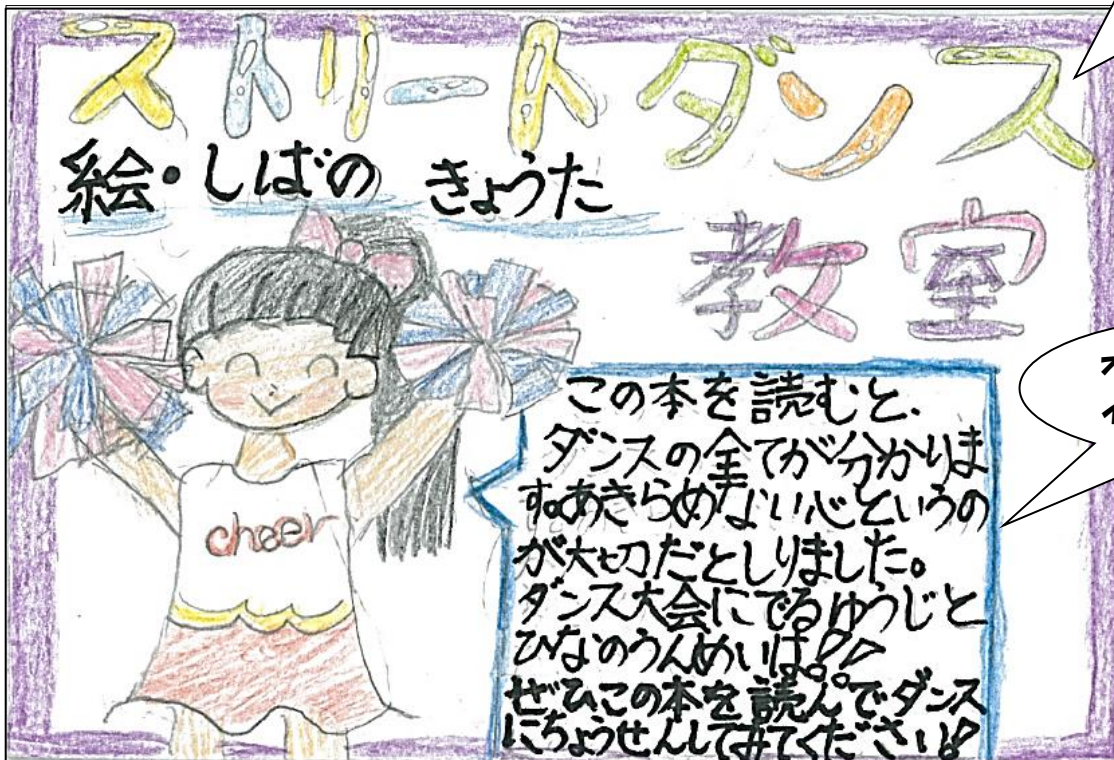 ストリートダンス
教室
絵・しばの きょうた
この本を読むと、
ダンスの全てが分かりま
す。あきらめない心というの
が大切だとしりました。
ダンス大会にでるゆうじと
ひなのうんめいは!?
ぜひこの本を読んでダンス
にちょうせんしてみてください!
cheer